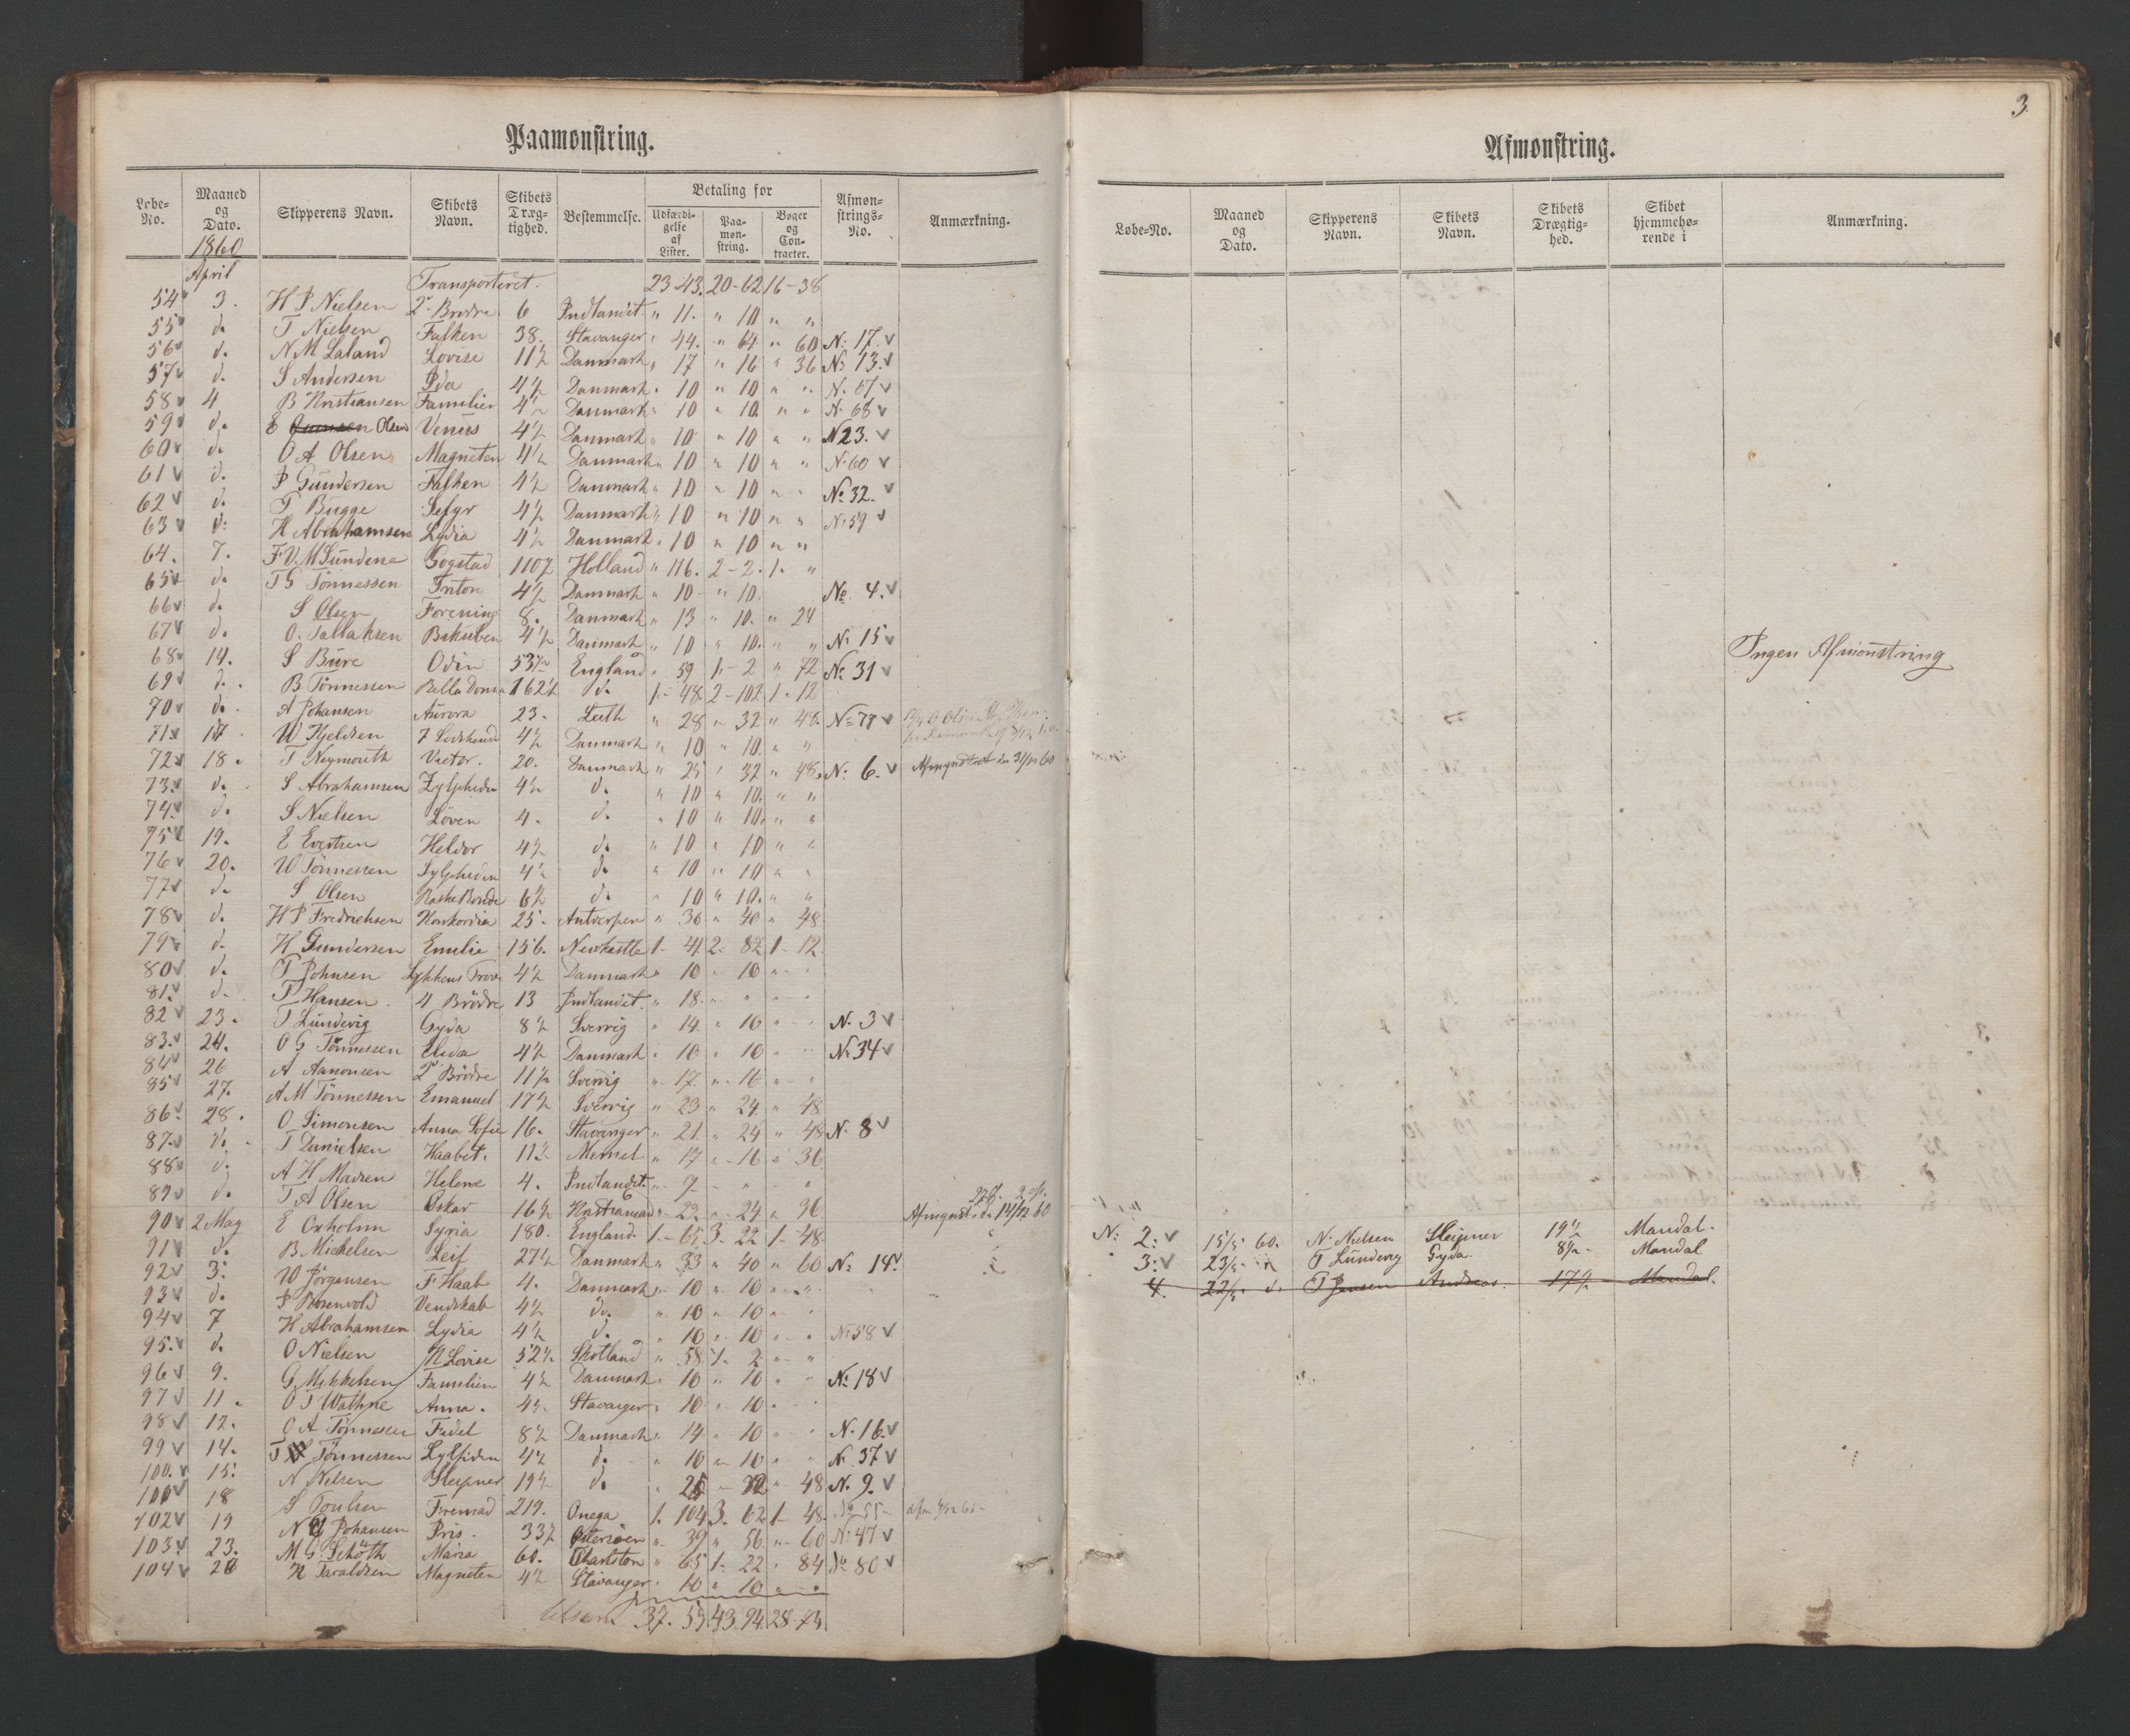 Paamønstring.
Løbe-No. Maaned og Dato. Skipperens Navn. Skibets Navn. Skibets Drægtighed. Bestemmelse. Betaling for Udfærdigelse af Lister. Paamønstring. Bøger og Contracter. Afmønstrings-No. Anmærkning.
1860
April Transporteret. 23-43. 20-62 16-38
54 3. H P Nielsen 2 Brødre 6 Indlandet " 11. " 10 " "
55 d. T Nielsen Falken 38. Stavanger " 44. " 64 " 60 N: 17.
56 d. N M Laland Lovise 11½ Danmark " 17 " 16 " 36 No 13.
57 d. S Andersen Ida 4½ Danmark " 10 " 10 " " N. 67
58 4 B Kristiansen Familien 4½ Danmark " 10 " 10. " " N. 68
59 d. E Jansen Olsen Venus 4½ Danmark " 10 " 10 " " N 23.
60 d. O A Olsen Magneten 4½ Danmark " 10 " 10 " " No 60
61 d. P Gundersen Falken 4½ Danmark " 10 " 10 " " No 32.
62 d. T Bugge Sefyr 4½ Danmark " 10 " 10 " " No 59
63 d: H Abrahamsen Lydia 4½ Danmark " 10 " 10 " "
64. 7. F.V.M Sundene Gogstad 110½ Holland " 116. 2-2. 1. "
65 d. T G Tönnessen Triton 4½ Danmark " 10 " 10. No. 4.
66 d. S Olsen Forening 8. Danmark " 13 " 10. " 24
67 d. O. Tallaksen Bikuben 4½ Danmark " 10 " 10. " " No 15
68 14. S Bure Odin 53½ England " 59 1.- 2 " 72 No 31
69 d. B Tönnessen Bella Donna 162½ d. 1.- 48. 2-102 1. 12
70 d. A Johansen Aurora 23. Leith " 28 " 32 " 48. No 77
71 17 W Kjeldsen 7 4½ Danmark " 10 " 10. " "
72 18. T Neymouth Victor. 20. Danmark " 25 " 32 " 48. No: 6. Afmynstret den 31/12 60
73. d. S Abrahamsen Zylphiden 4½ d. " 10 " 10. " "
74. d. S Nielsen Löven 4. d. " 10 " 10. " "
75 19. E Evertsen Heldor 4½ d. " 10 " 10 " "
76 20. W Tönnessen Sylphiden 4½ d. " 10 " 10 " "
77 d. S Olsen Raske Bonde 6½ d. " 10 " 10. " "
78 d. H P Fredriksen Konkordia 25. Antverpen " 36 " 40 " 48
79 d. H Gundersen Emilie 156. Newkastle 1- 41 2- 82 1- 12.
80 d. T Johnsen Lykkens Prøve 4½ Danmark " 10 " 10 " "
81. d. T Hansen. 4 Brödre 13 Indlandet. " 18. " " " "
82 23. T Lundevig Gyda 8½ Sverrig " 14 " 16 " " N. 3
83. 24. O G Tönnessen Elida 4½ Danmark " 10 " 10 " " No 34
84 26 A Aanonsen 2 Brödre 11½ Sverrig " 17 " 16 " "
85 27. A M Tönnessen Emanuel 17½ Sverrig " 23 " 24 " 48
86. 28. O Simonsen Anna Sofie 16. Stavanger " 21 " 24 " 48 N. 8
87. d. T Danielsen Haabet. 11½ Memel " 17 " 16 " 36
88 d. A H Madsen Helene 4. Indlandet. " 9 - " - "
89 d. T A Olsen Oskar 16½ Kristiansand " 22 " 24 " 36
90 2 May E Oxholm Syria 180. England. 1.- 65 3. 22 1- 48 Afmynst. d. 14/12 60
91 d. B Mickelsen Leif 27½ Danmark " 33 " 40 " 60 No 14.
92 3. W Jörgensen F Haab 4. Danmark " 10 " 10 " "
93 d. P Rosenvold Vendskab 4½ do. " 10 " 10 " "
94 7 H Abrahamsen Lydia 4½ d. " 10 " 10 " " No 58
95. d. O Nielsen N Lovise 52½ Skotland " 58 1. 2 " "
96 9. G Mikkelsen Familien 4½ Danmark " 10 " 10 " " No 18
97 11. O T Wathne Anna. 4½ Stavanger " 10 " 10 "
98 12. O A Tönnessen Fidel 8½ Danmark " 14 " 10 " " N. 16.
99 14. T Tönnessen Sylfiden 4½ d. " 10 " 10 " " N. 37
100. 15. N Nilsen Sleipner 19½ d. " 25 " 32 " 48 N. 9.
101 18 S Poulsen Fremad 219. Onega 1. 104 3. 62 1- 48. No 55
102 19 N Johansen Pris. 33½ Østersöen " 39 " 56 " 60 No 47
103. 23. M G Schöth Maria 60. Charlston " 65 1. 22 " 84 No 80
104 26 N Taraldsen Magneten 4½ Stavanger " 10 " 10 " "
37. 55. 43. 94. 28-74.
3.
Afmønstring.
Løbe-No. Maaned og Dato. Skipperens Navn. Skibets Navn. Skibets Drægtighed. Skibet hjemmehørende i Anmærkning.
Ingen Afmönstring
No: 2. 15/5 60. N. Nielsen Sleipner 19½ Mandal.
3. 23/5 T Lundevig Gyda. 8½ Mandal
4. 22/5 d. T Jensen Andreas. 17½ Mandal.